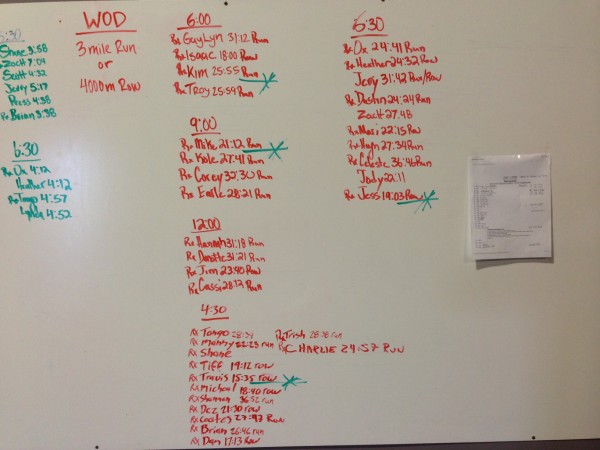 5:30
Shane 3:58
Zach 7:04
Scott 4:32
Jerry 5:17
Press 4:38
Rx Brian 3:38
6:30
Rx Ox 4:12
Heather 4:12
Rx Tango 4:57
4:52
WOD
3 mile Run
or
4000m Row
6:00
Rx GayLyn 31:12 Run
Rx Isaac 18:00 Row
Rx Kim 25:55 Run
Rx Troy 25:59 Run
9:00
Rx Mike 21:12 Run
Rx Kole 27:41 Run
Rx Corey 32:30 Run
Rx Emile 28:21 Run
12:00
Rx Hannah 31:18 Run
Rx Danette 31:21 Run
Rx Jim 23:40 Row
Rx Cassi 28:12 Run
4:30
Rx Tongo 28:24
Rx Manny 22:23 run
Rx Shane
Rx Tiff 19:12 row
Rx Travis 15:35 row
Rx Michael 18:40 row
Rx Shannon 36:52 run
Rx Dez 21:30 row
Rx Coates 27:47 Run
Rx Brian 26:46 run
Rx Dan 17:13 Row
Rx Trish 28:38 run
Rx CHARLIE 24:57 RUN
5:30
Rx Ox 24:41 Run
Rx Heather 24:32 Row
Jerry 31:42 Run/Row
Rx Dustin 24:24 Run
Zach 27:48
Rx Mari 22:15 Row
Rx Hayn 27:34 Run
Rx Celeste 36:46 Run
Jody 22:11
Rx Jess 19:03 Row